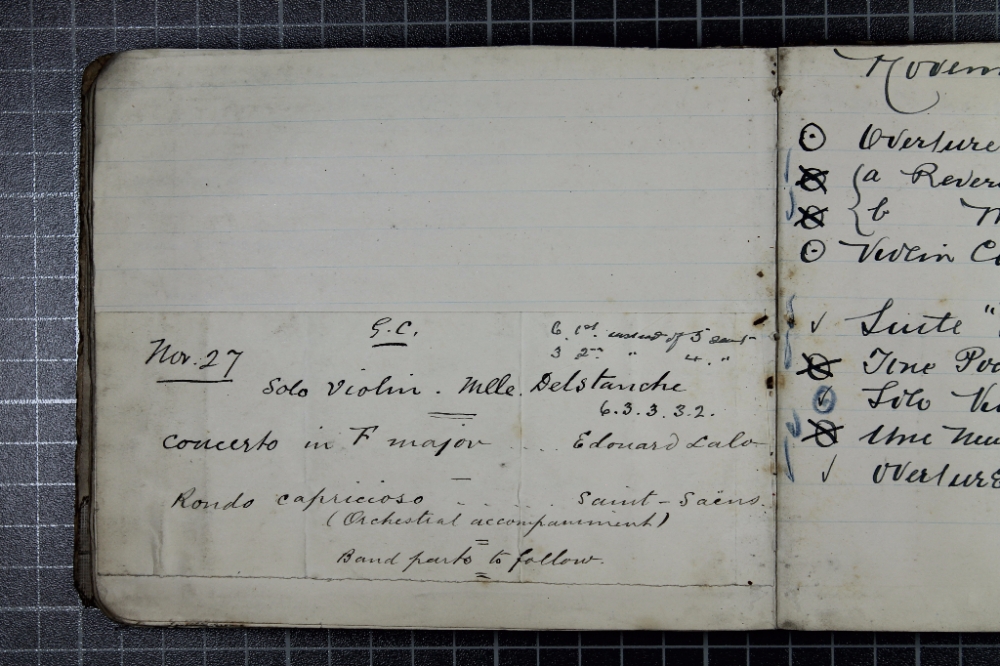 G.C.
6 1st instead of 5 sent
3 2nd " 4 "
Nov. 27
Solo Violin . Mlle. Delstanche
6.3.3.3.2.
Concerto in F major .... Edouard Lalo
Rondo capricioso .... Saint-Saëns.
(Orchestral accompaniment)
Band parts to follow.
Modern
Overture
a Rever
b
Violin Co
Suite "
Tone Poe
Solo Vi
Une
Overture